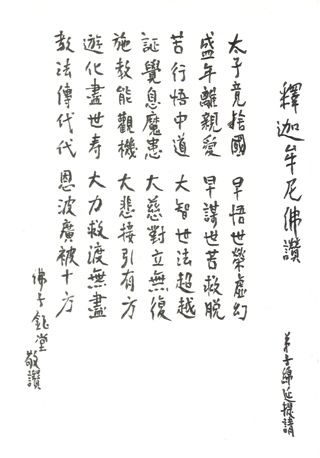 釋迦牟尼佛讚
弟子歸延 請
太子竟捨國 早悟世榮虛幻
盛年離親愛 早謀世苦救脫
苦行悟中道 大智世法超越
証覺息魔恚 大慈對立無復
施教能觀機 大悲接引有方
遊化盡世壽 大力救渡無盡
教法傳代代 恩波廣被十方
佛子鈺堂敬讚